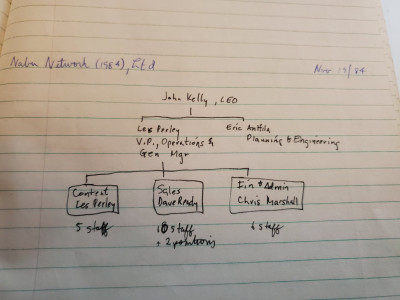 Nabu Network (1984), Ltd
Nov 19/84
John Kelly, CEO
Les Perley
V.P., Operations &
Gen Mgr
Eric Anttila
Planning & Engineering
Content
Les Perley
5 staff
Sales
Dave Ready
10 staff
+ 2 positions
Fin & Admin
Chris Marshall
staff